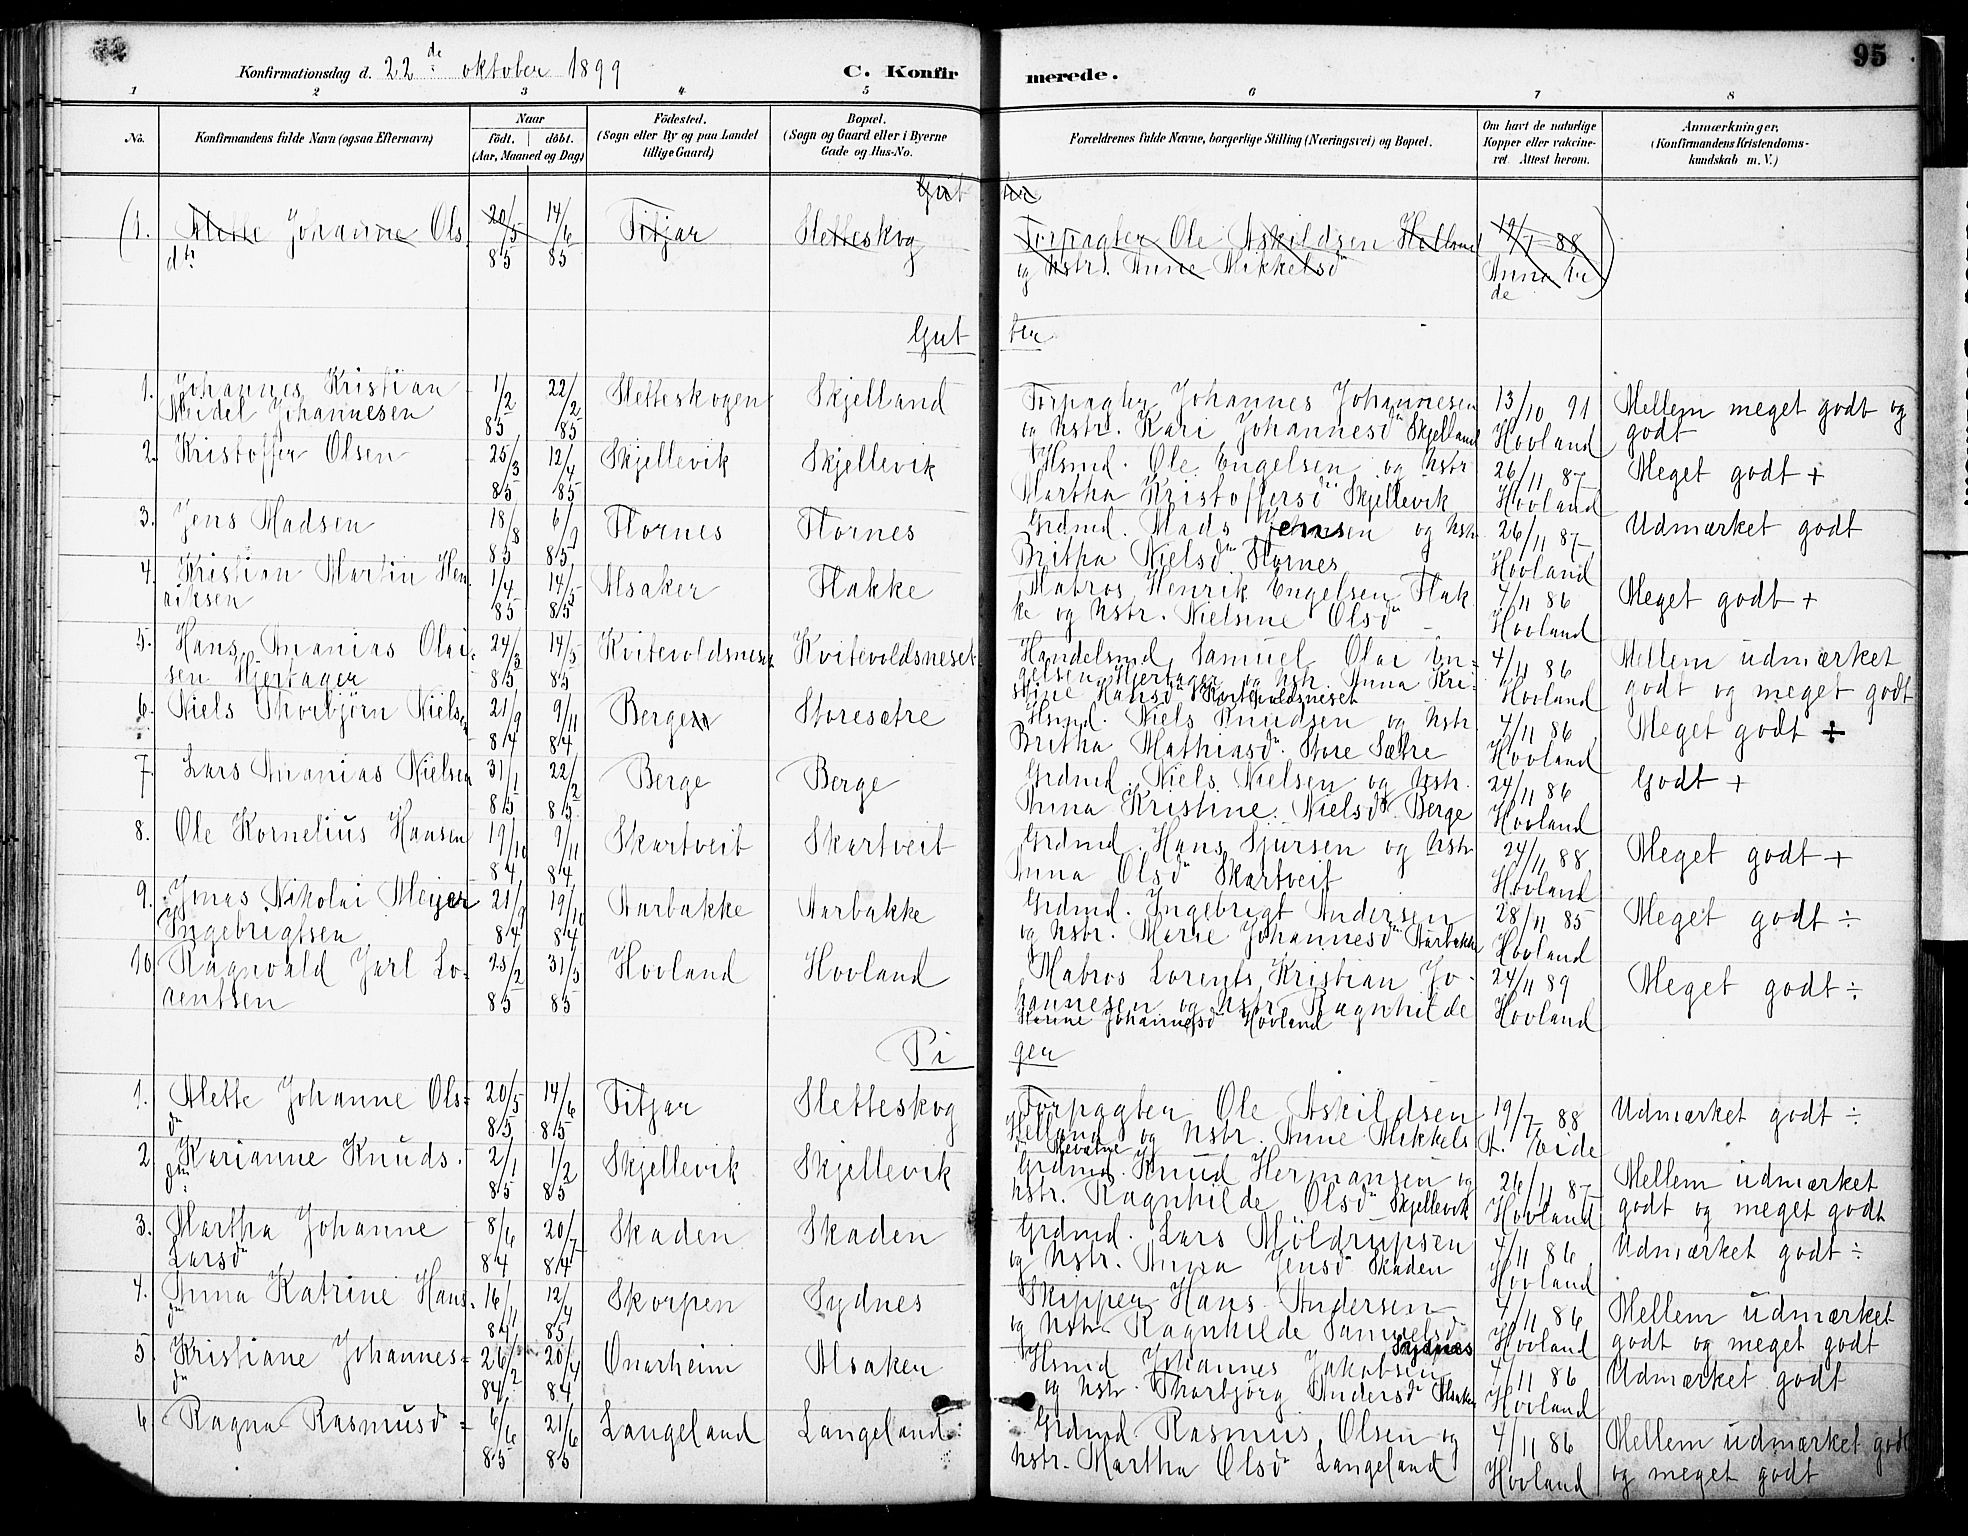 95
Konfirmationsdag d. 22de oktober 1899 C. Konfirmerede.
1 2 3 4 5 6 7 8
No. Konfirmandens fulde Navn (ogsaa Efternavn) Naar født. døbt. (Aar, Maaned og Dag) Fødested. (Sogn eller By og paa Landet tillige Gaard) Bopæl. (Sogn og Gaard eller i Byerne Gade og Hus-No. Forældrenes fulde Navne, borgerlige Stilling (Næringsvei) og Bopæl. Om havt de naturlige Kopper eller vakcineret. Attest herom. Anmærkninger. (Konfirmandens Kristendomskundskab m. V.)
Gutter
(1. Alette Johanne Ols- 20/5 14/6 Fitjar Sletteskog Forpagter Ole Askildsen Helland 19/7 88
dtr 85 85 og Hstr. Anne Mikkelsdr Anna Vei)
de
Gutter
1. Johannes Kristian 1/2 22/2 Sletteskogen Skjelland Forpagter Johannes Johannesen 13/10 91 Mellem meget godt og
Meidel Johannesen 85 85 og Hstr. Kari Johannesdr Skjelland Hovland godt
2. Kristoffer Olsen 25/3 12/4 Skjellevik Skjellevik Hsmd. Ole Engelsen og Hstr 26/11 87 Meget godt +
85 85 Martha Kristoffersdr Skjellevik Hovland
3. Jens Madsen 18/8 6/9 Flornes Flornes Grdmd. Mads Jensen og Hstr 26/11 87 Udmærket godt
85 85 Britha Nielsdr Flornes Hovland
4. Kristian Martin Hen- 1/4 14/5 Alsaker Flakke Matros Henrik Engelsen Flak- 4/11 86 Meget godt +
riksen 85 85 ke og Hstr. Nielsine Olsdr Hovland
5. Hans Ananias Olai- 24/3 14/5 Kvitevoldsneset Kvitevoldsneset Handelsmd. Samuel Olai En- 4/11 86 Mellem udmærket
sen Hjertager 85 85 gelsen Hjertager og Hstr. Anna Kri- Hovland godt og meget godt
stine Hansdr
6. Niels Thorbjørn Nielsen 21/9 9/11 Berge Storesætre Hsmd. Niels Knudsen og Hstr. 4/11 86 Meget godt ÷
84 84 Britha Mathiasdr. Store Sætre Hovland
7. Lars Ananias Nielsen 31/1 22/2 Berge Berge Grdmd. Niels Nielsen og Hstr. 24/11 86 Godt +
85 85 Anna Kristine Nielsdr. Berge Hovland
8. Ole Kornelius Hansen 19/10 9/11 Skartveit Skartveit Grdmd. Hans Sjursen og Hstr 24/11 88 Meget godt +
84 84 Anna Olsdr Skartveit Hovland
9. Jonas Nikolai Meyer 21/9 19/10 Aarbakke Aarbakke Grdmd. Ingebrigt Andersen 28/11 85 Meget godt ÷
Ingebrigtsen 84 84 og Hstr. Marie Johannesdr Aarbakke Hovland
10 Ragnvald Jarl Lo- 25/2 31/5 Hovland Hovland Matros Lorents Kristian Jo- 24/11 89 Meget godt ÷
rentsen 85 85 hannesen og Hstr. Ragnhilde Hovland
Johannesdr Hovland
Piger
1. Alette Johanne Ols- 20/5 14/6 Fitjar Sletteskog Forpagter Ole Askildsen 19/7 88 Udmærket godt ÷
dr 85 85 Helland og Hstr. Anne Mikkels A. Veide
dr
2 Karianne Knuds. 2/1 1/2 Skjellevik Skjellevik Grdmd. Knud Hermansen og 26/11 87 Mellem udmærket
dtr 85 85 Hstr. Ragnhilde Olsdr Skjellevik Hovland godt og meget godt
3. Martha Johanne 8/6 20/7 Skaden Skaden Grdmd. Lars Møldrupsen 4/11 86 Udmærket godt ÷
Larsdr 84 84 og Hstr. Anna Jensdr Skaden Hovland
4. Anna Katrine Hans- 16/11 12/4 Skorpen Sydnes Skipper Hans Andersen 4/11 86 Mellem udmærket
dtr 84 85 og Hstr. Ragnhilde Samuelsdr Hovland godt og meget godt
Sydnes
5. Kristiane Johannes- 26/2 20/4 Onarheim Alsaker Hsmd Johannes Jakobsen 4/11 86 Udmærket godt
dr 84 84 og Hstr. Thorbjørg Andersdr Alsaker Hovland
6 Ragna Rasmusdr 6/6 21/6 Langeland Langeland Grdmd Rasmus Olsen og 4/11 86 Mellem udmærket godt
85 85 Hstr. Martha Olsdr Langeland Hovland og meget godt